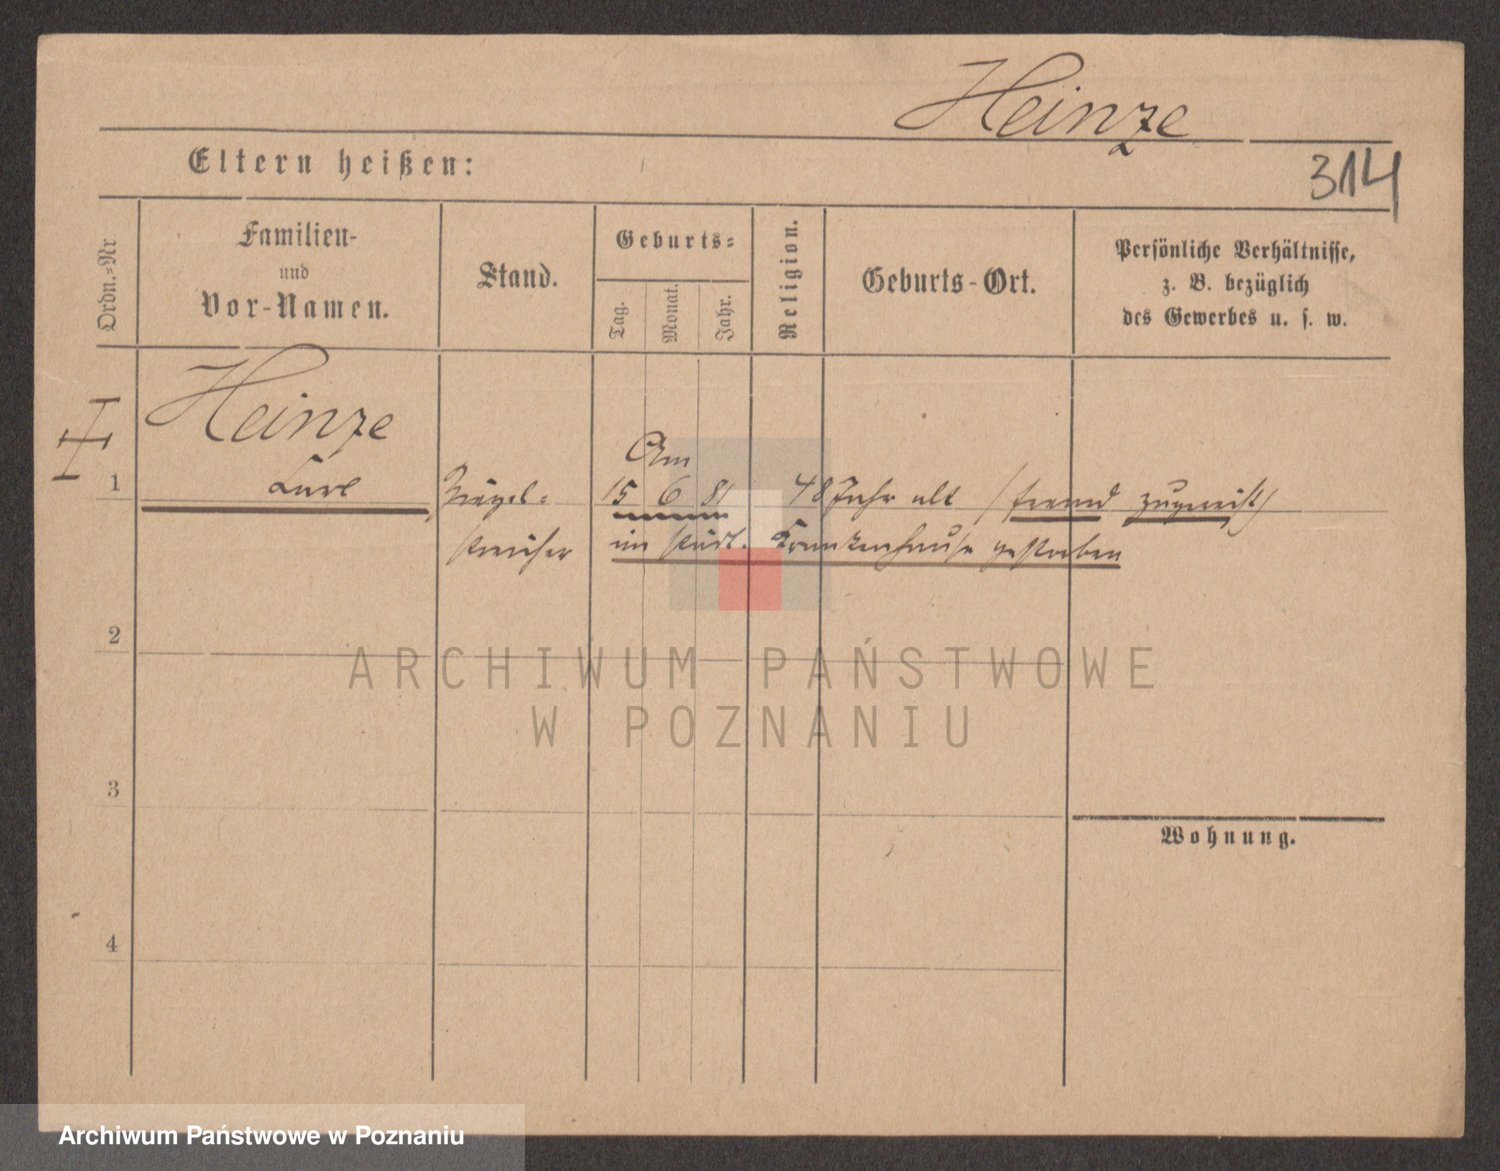 Heinze
314
Eltern heißen:
Ordn.=Nr
Familien-
und
Vor-Namen.
Stand.
Geburts=
Tag.
Monat.
Jahr.
Religion.
Geburts-Ort.
Persönliche Verhältnisse,
z. B. bezüglich
des Gewerbes u. s. w.
Heinze
Am
1
Carl
Ziegel=
15 6 81 48 Jahr alt (fremd zugereist)
streicher
im städt. Krankenhause gestorben
2
ARCHIWUM PAŃSTWOWE
W POZNANIU
3
Wohnung.
4
Archiwum Państwowe w Poznaniu